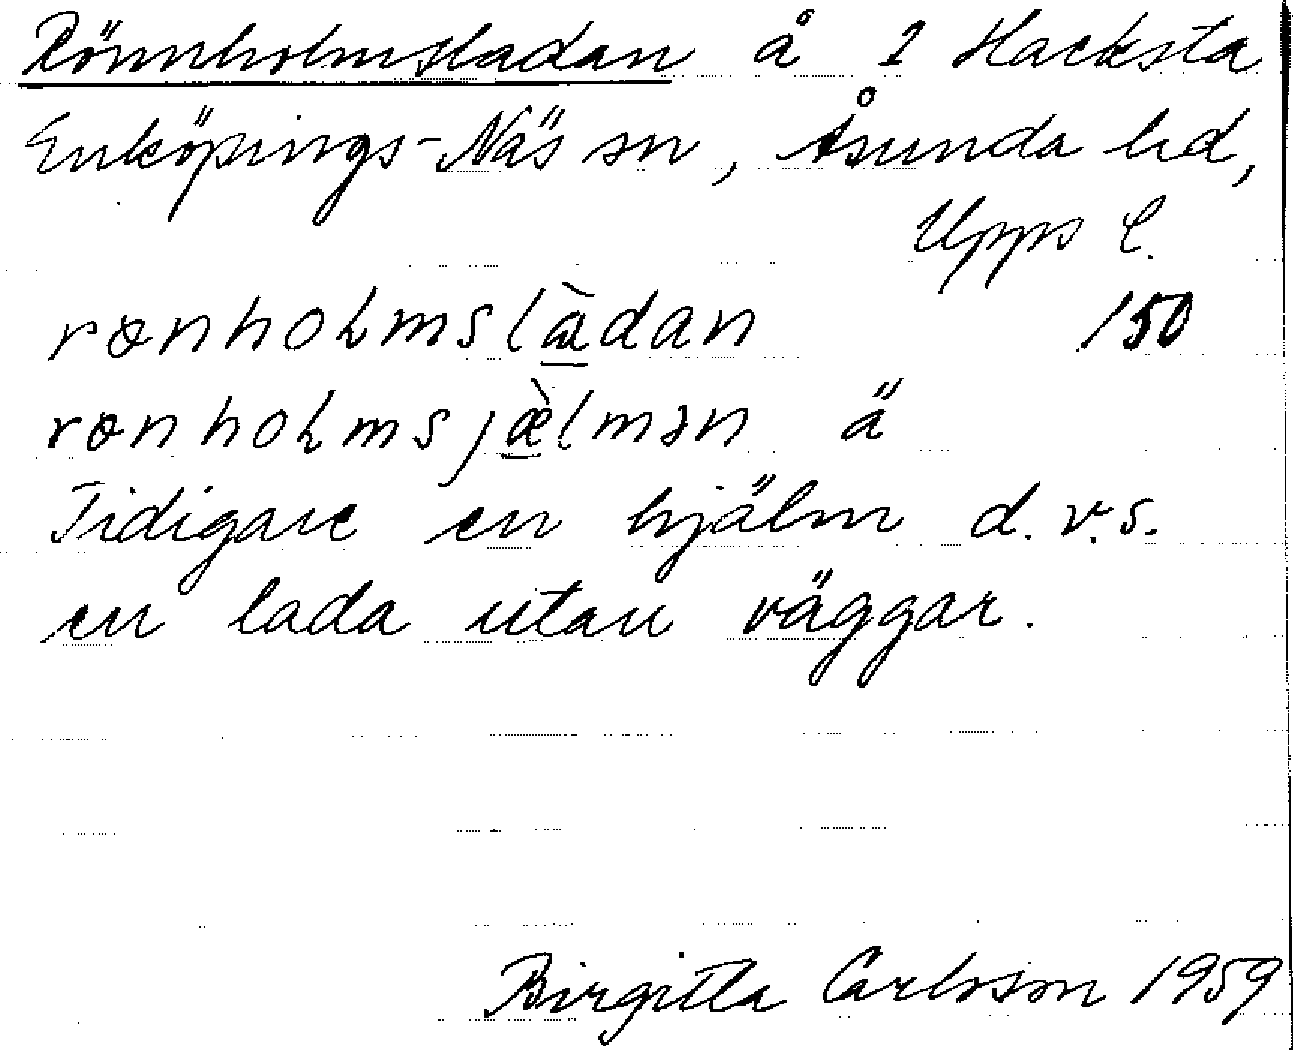 Rönnholmsladan å 1 Hacksta
Enköpings-Näs sn, Åsunda hd,
Upps l.
rɵnhoLmslà̱dan 150
rɵnhoLmsjæ̱̀lmən ä
Tidigare en hjälm d.v.s.
en lada utan väggar.
Birgitta Carlsson 1959